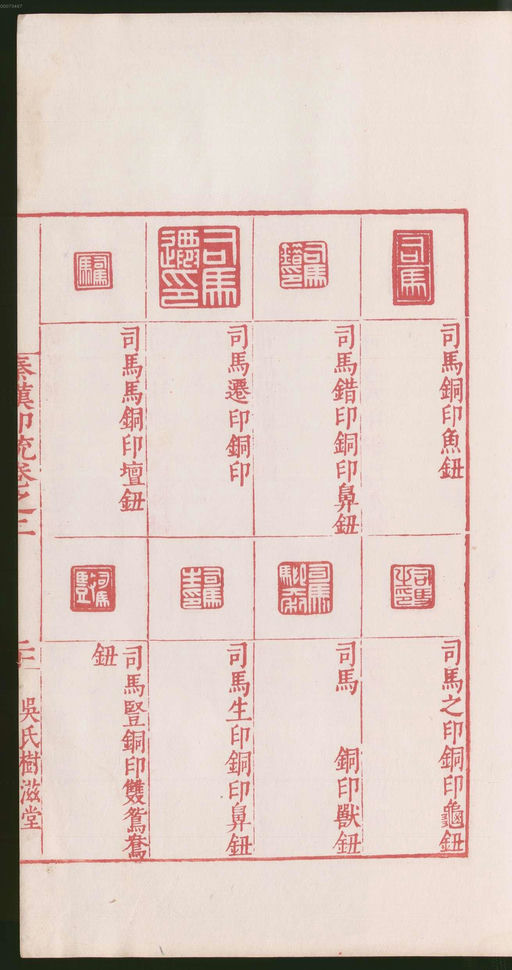 00073447
司馬銅印魚鈕
司馬錯印銅印鼻鈕
司馬遷印銅印
司馬馬銅印壇鈕
司馬之印銅印龜鈕
司馬　銅印獸鈕
司馬生印銅印鼻鈕
司馬豎銅印雙鴛鴦
鈕
秦漢印統卷之三
吳氏樹滋堂